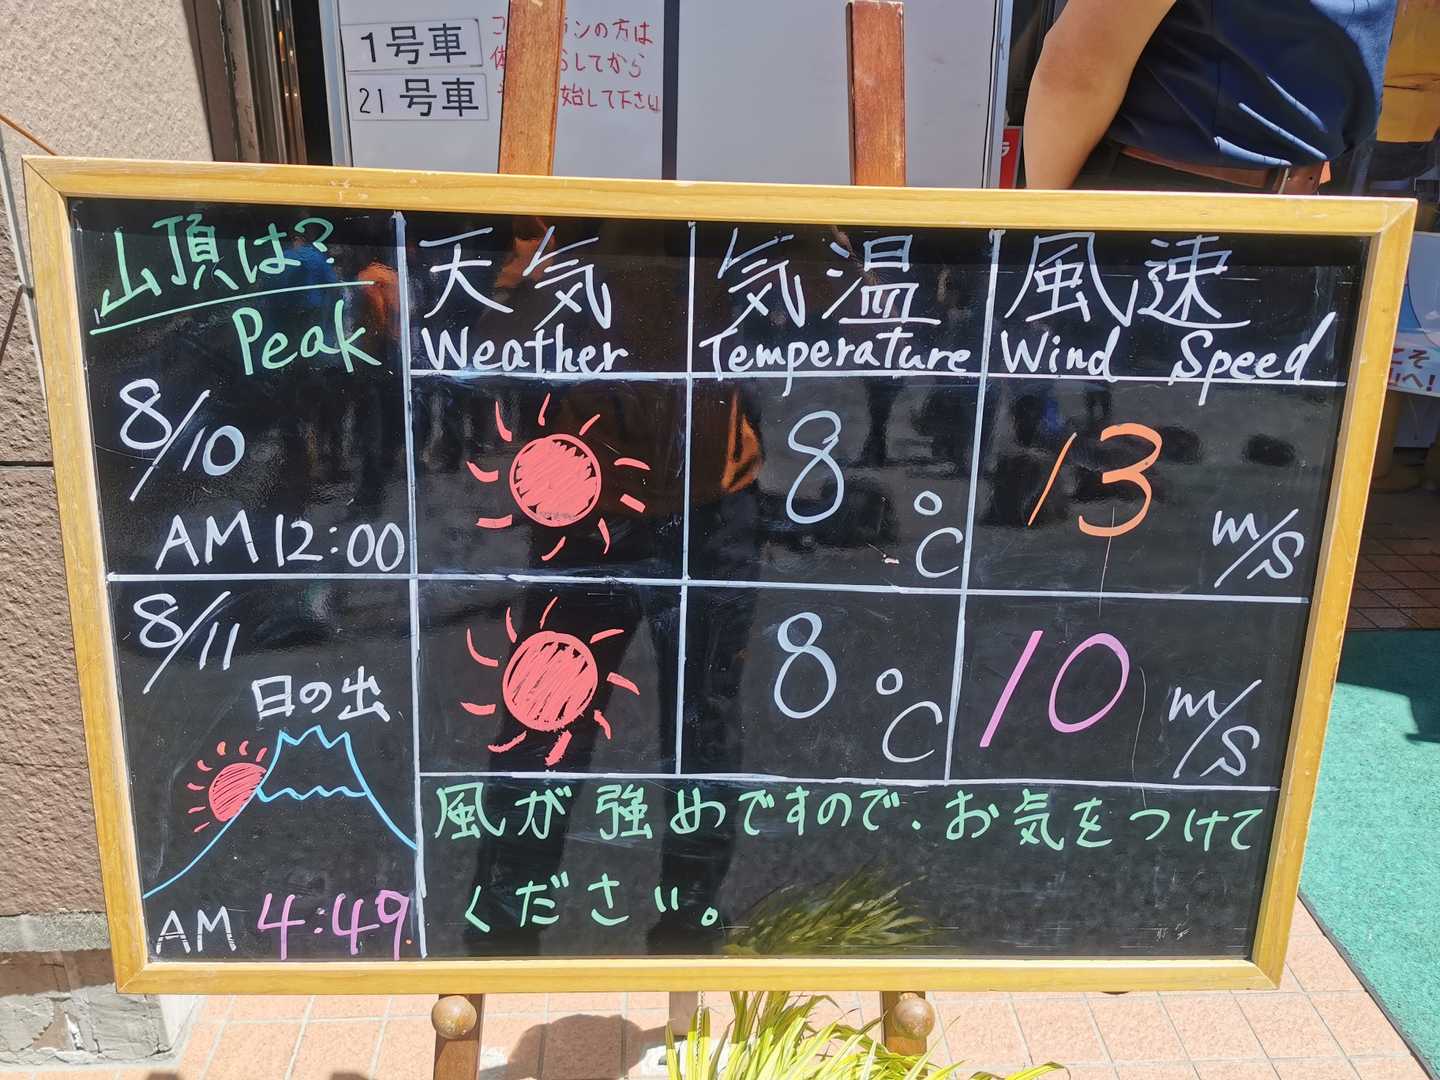 1号車
21号車
ンの方は
してから
始して下さい
山頂は?
Peak
天気
Weather
気温
Temperature
風速
Wind Speed
8/10
AM 12:00
8
°C
13
m/s
8/11
日の出
AM 4:49
8
°C
10
m/s
風が強めですので、お気をつけて
ください。